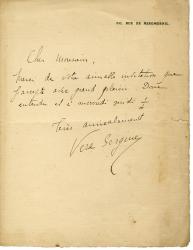 RUE DE MIROMESNIL
Cher Monsieur,
Merci de votre aimable invitation que
j'accepte avec grand plaisir. Donc
entendu et à mercredi midi ½
Très amicalement
Vera Sergine